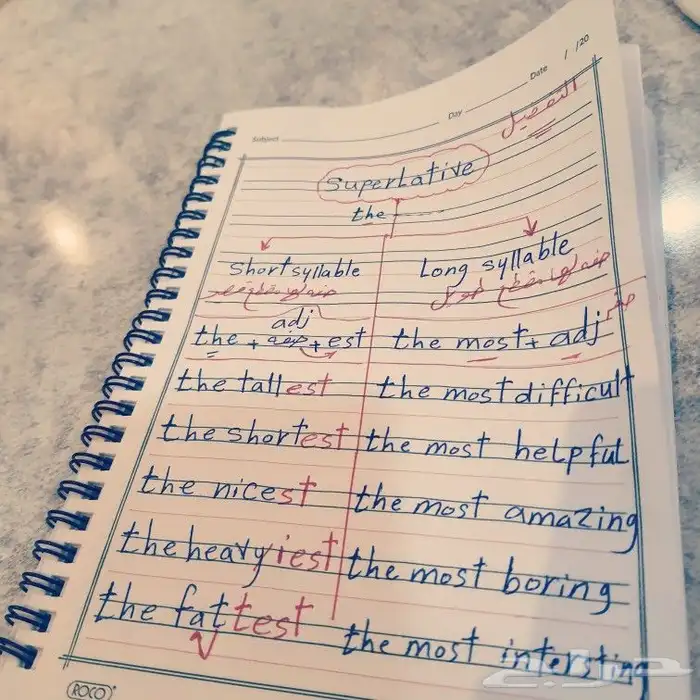 Date / /20
Day
Subject
التفضيل
Superlative
the
Short syllable
Long syllable
صفه لها مقطع قصير
صفه لها مقطع طويل
adj
the + صفه + est
the most + adj صفه
the tallest
the most difficult
the shortest
the most helpful
the nicest
the most amazing
the heavyiest
the most boring
the fattest
the most intersting
ROCO
حراج